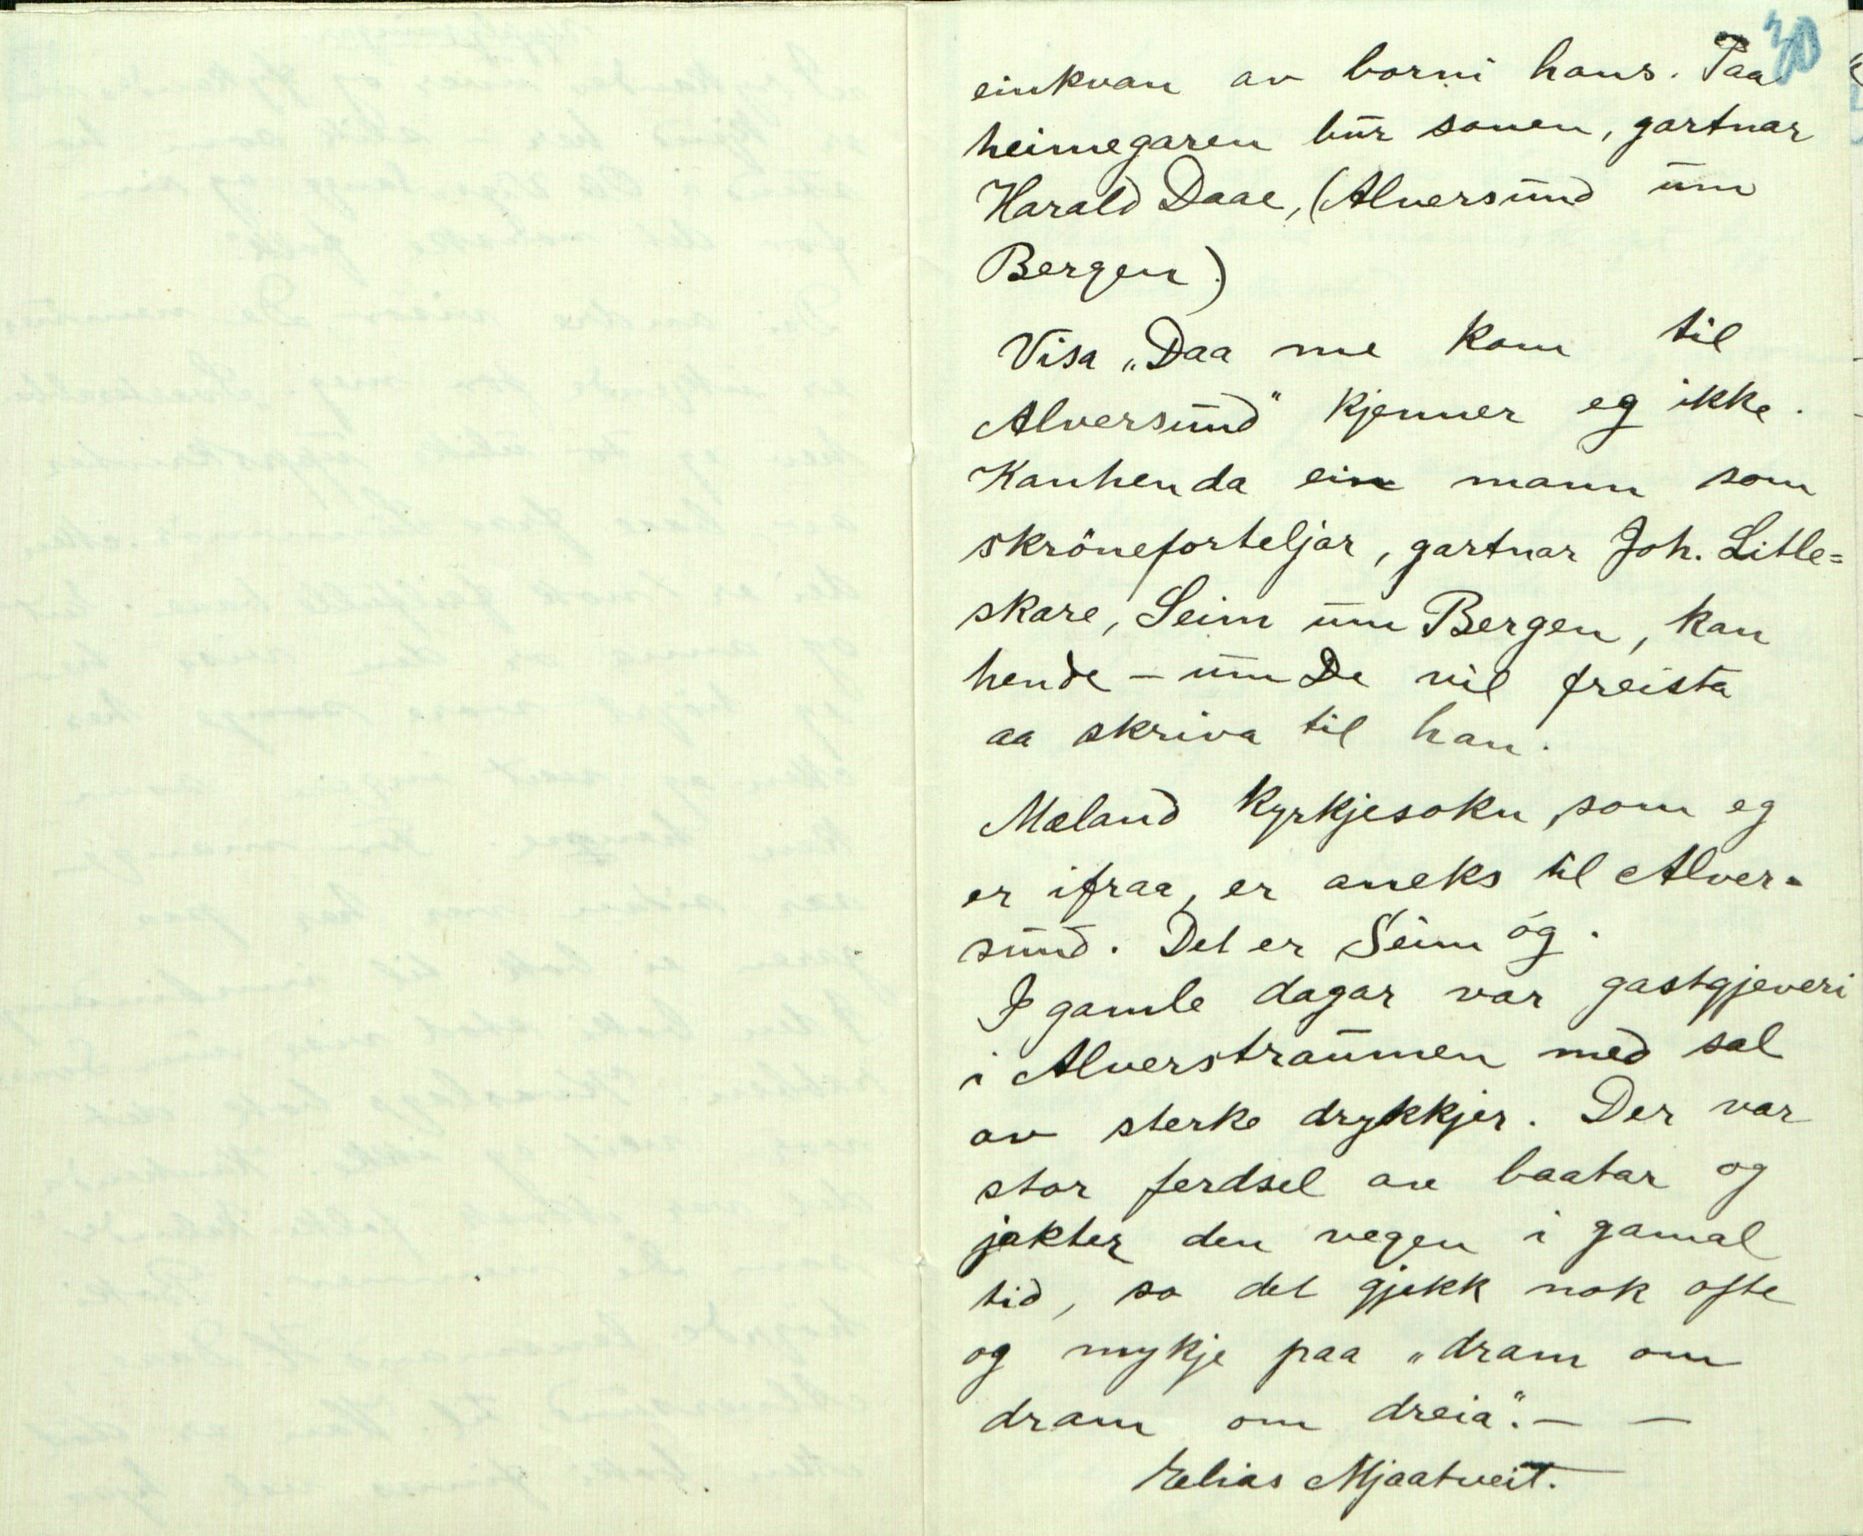 30
einkvan av borni hans. Paa
heimegaren bur sonen, gartnar
Harald Daae, (Alversund um
Bergen)
Visa „Daa me kom til
Alversund" kjenner eg ikke.
Kanhenda ein mann som
skrøneforteljar, gartnar Joh. Litle=
skare, Seim um Bergen, kan
hende – um De vil freista
aa skriva til han.
Mæland kyrkjesokn, som eg
er ifraa, er aneks til Alver-
sund. Det er Seim óg.
I gamle dagar var gastgjeveri
i Alverstraumen med sal
av sterke drykkjer. Der var
stor ferdsel av baatar og
jakter den vegen i gamal
tid, so det gjekk nok ofte
og mykje paa „dram om
dram om dreia". — —
Elias Mjaatveit.